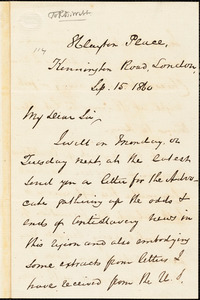 114
Claylon Place,
Kennington Road, London,
Sep. 15 1860
My Dear Sir,
I will on Monday, or
Tuesday next, at the latest
send you a letter for the Advo-
cate gathering up the odds &
ends of Antislavery news in
this region and also embodying
some extracts from letters I
have received from the U.S.